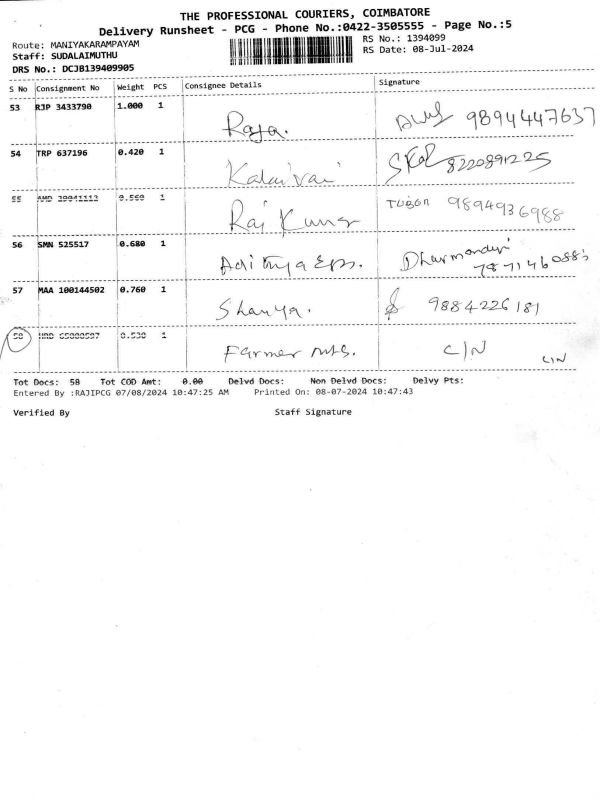 THE PROFESSIONAL COURIERS, COIMBATORE
Delivery Runsheet - PCG - Phone No.:0422-3505555 - Page No.:5
Route: MANIYAKARAMPAYAM
RS No.: 1394099
Staff: SUDALAIMUTHU
RS Date: 08-Jul-2024
DRS No.: DCJB139409905
S No Consignment No Weight PCS Consignee Details Signature
53 RJP 3433790 1.000 1
Raja. 9894447637
54 TRP 637196 0.420 1
Kalaivani 8220891225
55 AMD 0.560 1
Raj Kumar 9894936988
56 SMN 525517 0.680 1
Adithya Eps.
57 MAA 100144502 0.760 1
Sharya. 9884226181
58 0.530 1
Farmer nuts. C/N C/N
Tot Docs: 58 Tot COD Amt: 0.00 Delvd Docs: Non Delvd Docs: Delvy Pts:
Entered By :RAJIPCG 07/08/2024 10:47:25 AM Printed On: 08-07-2024 10:47:43
Verified By Staff Signature